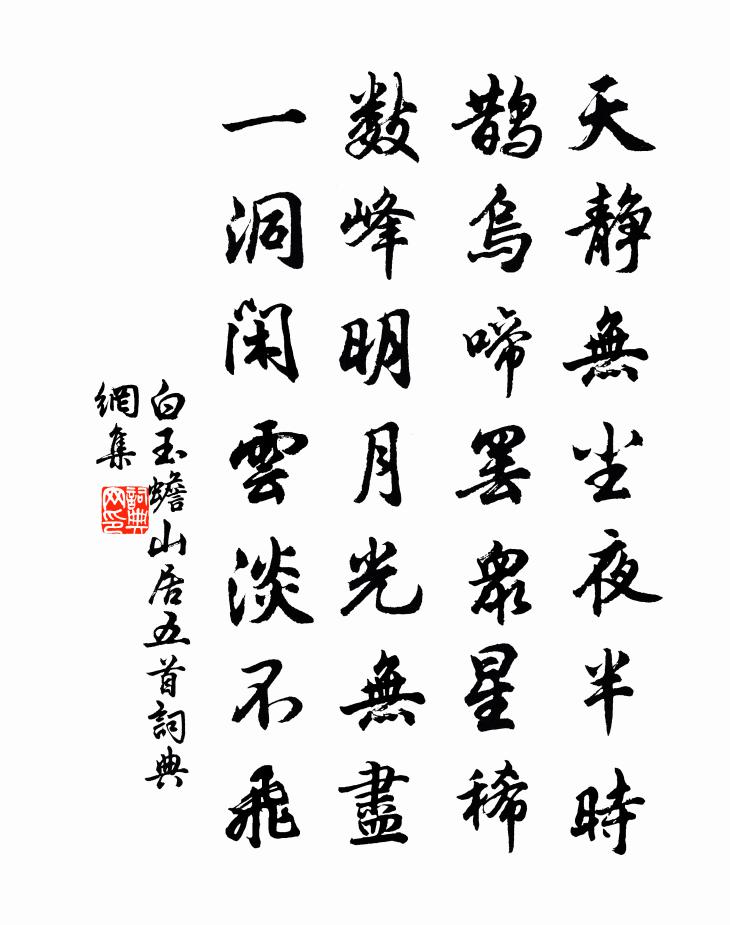 天靜無尘夜半時
鵲烏啼罢衆星稀
数峰明月光無盡
一洞闲雲淡不飛
白玉蟾山居五首詞典
網集
詞典
网印